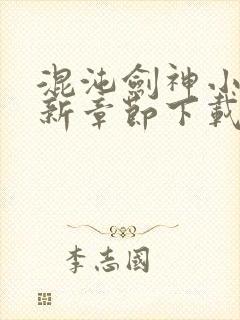 混沌劍神小
新章節下載
李志國